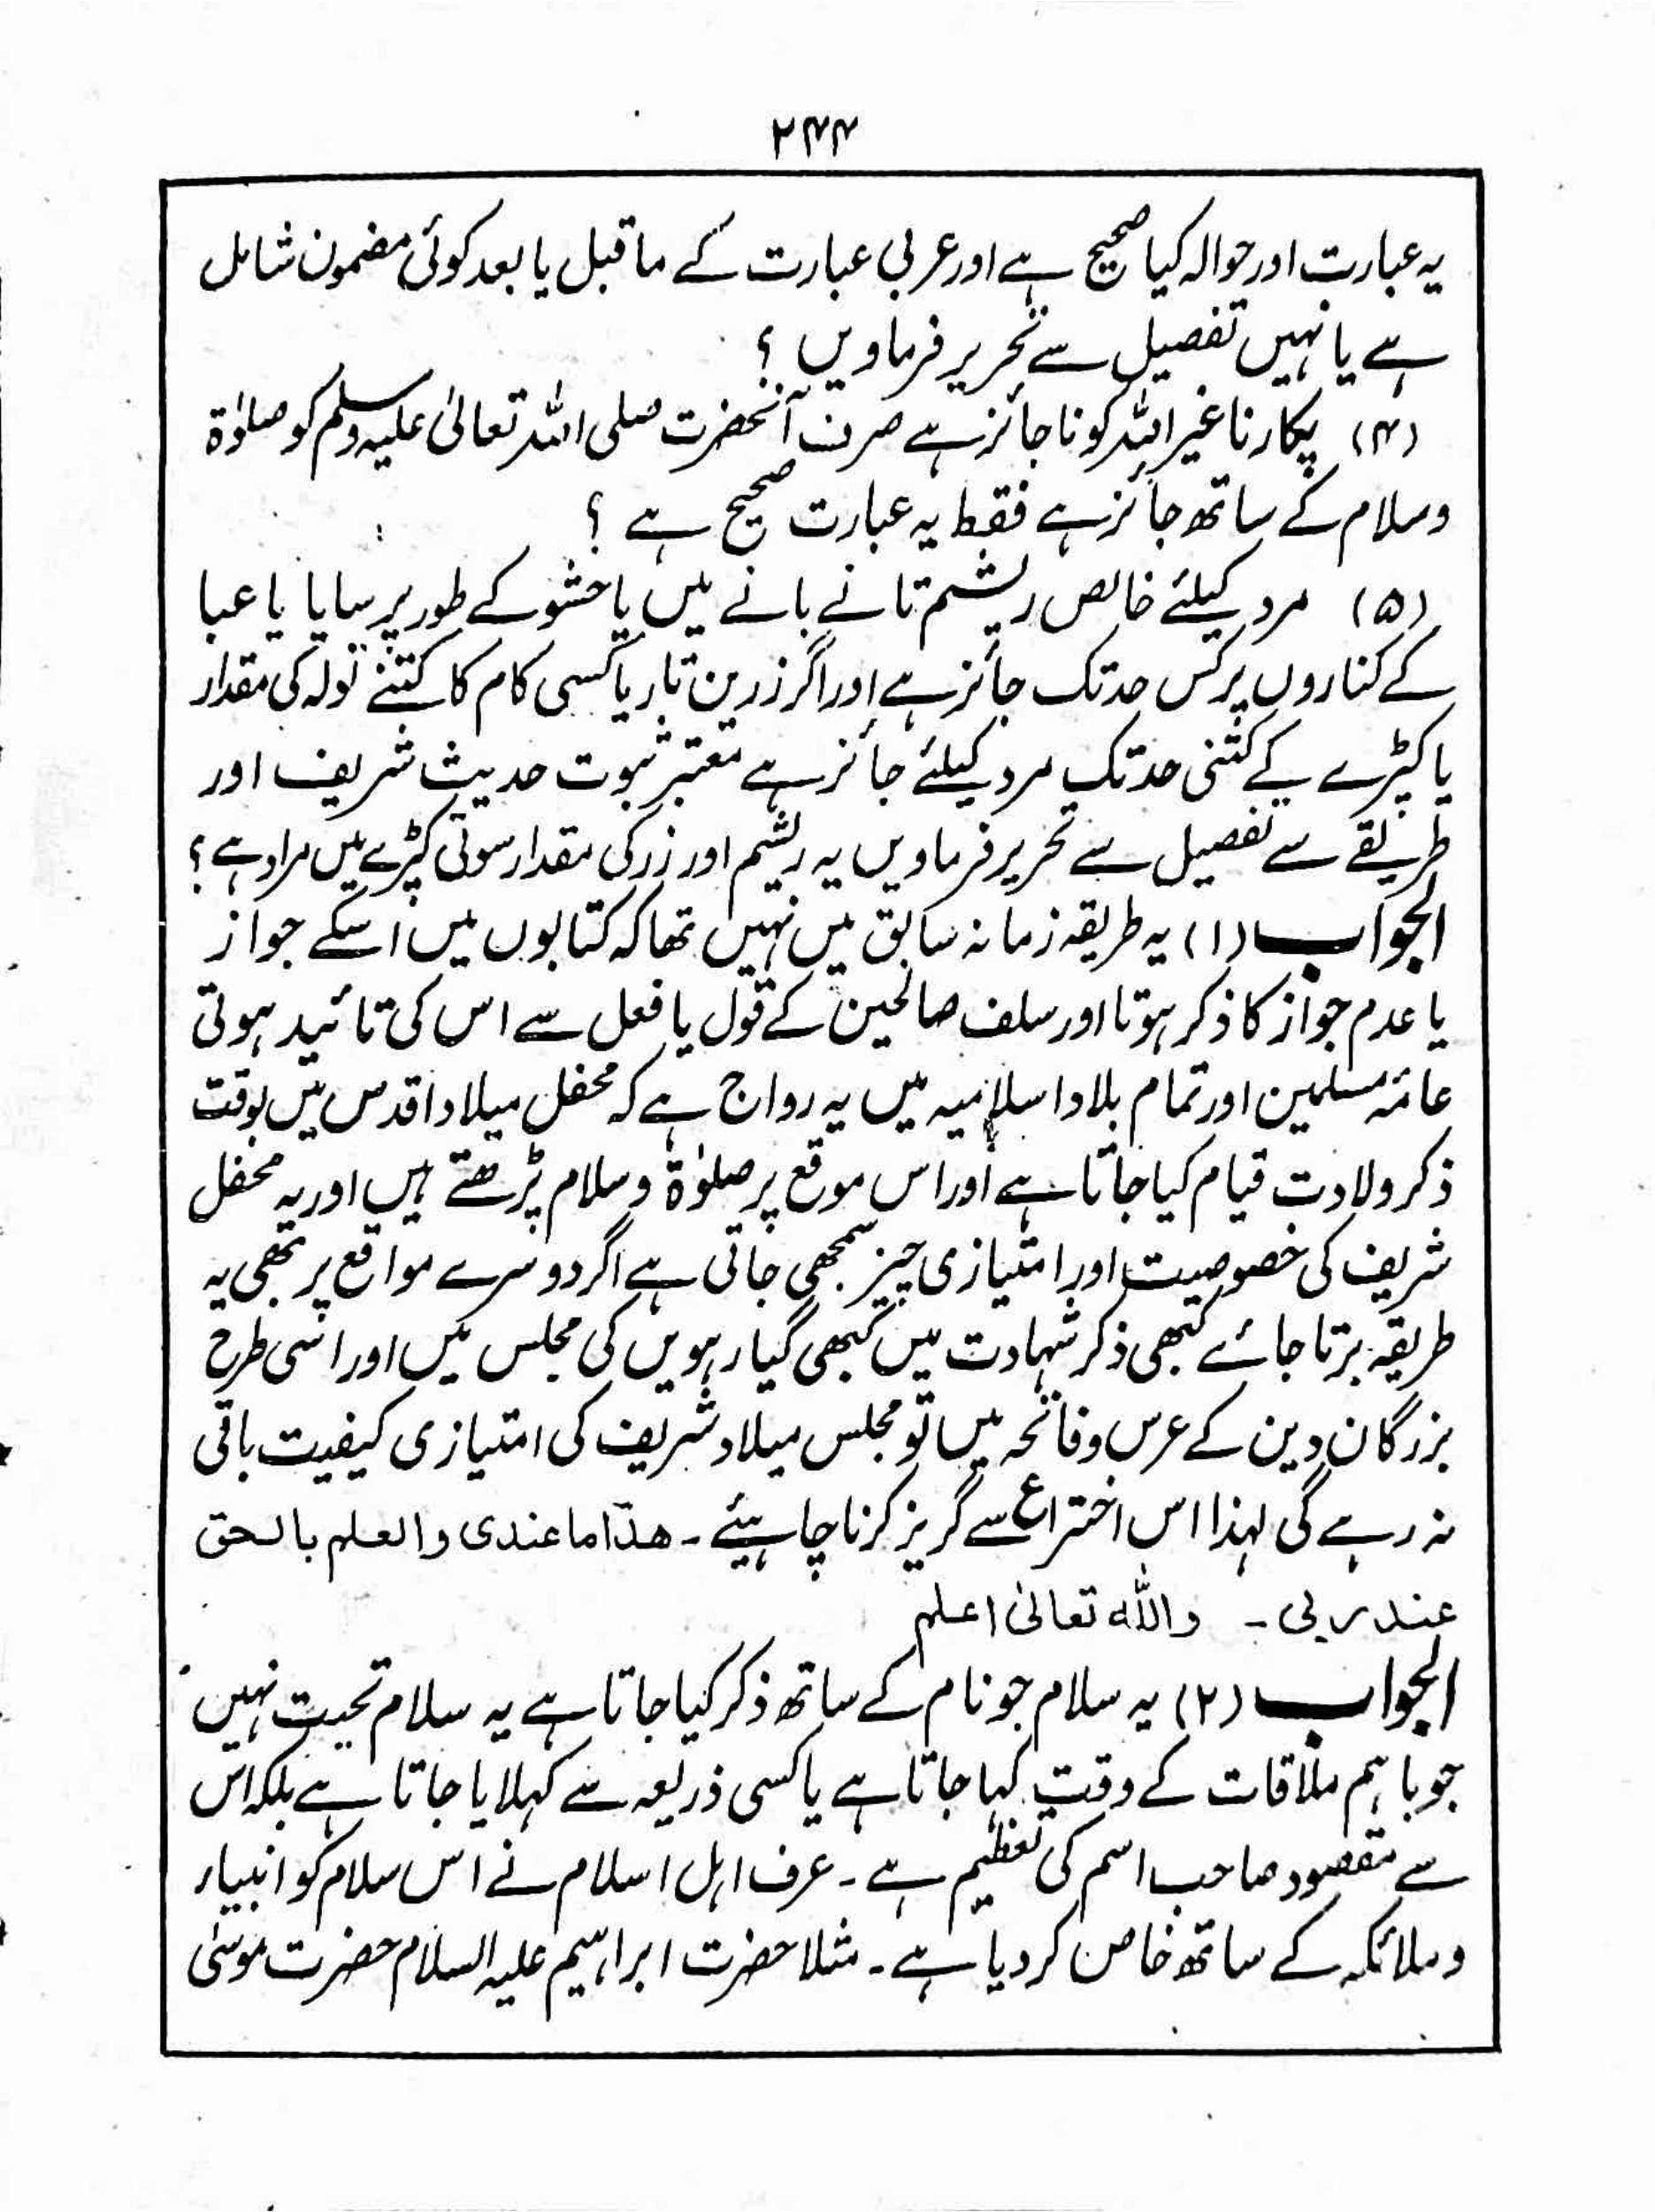 ۲۴۴
یہ عبارت اور حوالہ کیا صحیح ہے اور عربی عبارت کے ماقبل یا بعد کوئی مضمون شامل
ہے یا نہیں تفصیل سے تحریر فرماویں ؟
(۴) پکارنا غیر اللہ کو ناجائز ہے صرف آنحضرت صلی اللہ تعالیٰ علیہ وسلم کو صلوٰۃ
وسلام کے ساتھ جائز ہے فقط یہ عبارت صحیح ہے ؟
(۵) مرد کیلئے خالص ریشم تانے بانے میں یا حشو کے طور پر سایا یا عبا
کے کناروں پر کس حد تک جائز ہے اور اگر زرین تار یا کسی کام کا کتنے تولہ کی مقدار
یا کپڑے کے کتنی حد تک مرد کیلئے جائز ہے معتبر ثبوت حدیث شریف اور
طریقے سے تفصیل سے تحریر فرماویں یہ ریشم اور زر کی مقدار سوتی کپڑے میں مراد ہے ؟
الجواب (۱) یہ طریقہ زمانہ سابق میں نہیں تھا کہ کتابوں میں اسکے جواز
یا عدم جواز کا ذکر ہوتا اور سلف صالحین کے قول یا فعل سے اس کی تائید ہوتی
عامۂ مسلمین اور تمام بلاد اسلامیہ میں یہ رواج ہے کہ محفل میلاد اقدس میں بوقت
ذکر ولادت قیام کیا جاتا ہے اور اس موقع پر صلوٰۃ وسلام پڑھتے ہیں اور یہ محفل
شریف کی خصوصیت اور امتیازی چیز سمجھی جاتی ہے اگر دوسرے مواقع پر بھی یہ
طریقہ برتا جائے کبھی ذکر شہادت میں کبھی گیارہویں کی مجلس میں اور اسی طرح
بزرگان دین کے عرس وفاتحہ میں تو مجلس میلاد شریف کی امتیازی کیفیت باقی
نہ رہے گی لہذا اس اختراع سے گریز کرنا چاہیئے ۔ ھذا ما عندی والعلم بالحق
عند ربی ۔ واللہ تعالیٰ اعلم
الجواب (۲) یہ سلام جو نام کے ساتھ ذکر کیا جاتا ہے یہ سلام تحیت نہیں
جو باہم ملاقات کے وقت کہا جاتا ہے یا کسی ذریعہ سے کہلایا جاتا ہے بلکہ اس
سے مقصود صاحب اسم کی تعظیم ہے ۔ عرف اہل اسلام نے اس سلام کو انبیاء
وملائکہ کے ساتھ خاص کر دیا ہے ۔ مثلا حضرت ابراہیم علیہ السلام حضرت موسیٰ